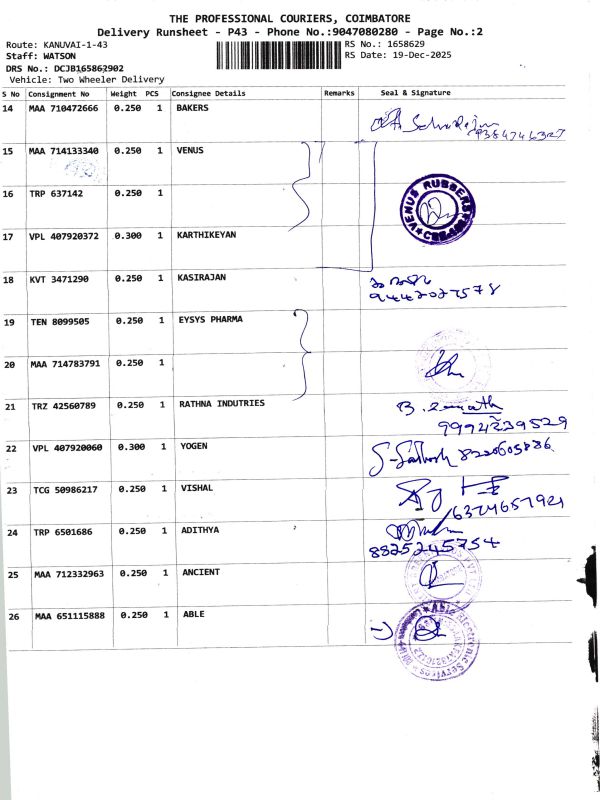 THE PROFESSIONAL COURIERS, COIMBATORE
Delivery Runsheet - P43 - Phone No.:9047080280 - Page No.:2
Route: KANUVAI-1-43 RS No.: 1658629
Staff: WATSON RS Date: 19-Dec-2025
DRS No.: DCJB165862902
Vehicle: Two Wheeler Delivery
S No Consignment No Weight PCS Consignee Details Remarks Seal & Signature
14 MAA 710472666 0.250 1 BAKERS
9384746327
15 MAA 714133340 0.250 1 VENUS
16 TRP 637142 0.250 1
VENUS RUBBERS
17 VPL 407920372 0.300 1 KARTHIKEYAN
18 KVT 3471290 0.250 1 KASIRAJAN
9442027578
19 TEN 8099505 0.250 1 EYSYS PHARMA
20 MAA 714783791 0.250 1
21 TRZ 42560789 0.250 1 RATHNA INDUTRIES
9994239529
22 VPL 407920060 0.300 1 YOGEN S-Sathosh 8220605886
23 TCG 50986217 0.250 1 VISHAL
6374657921
24 TRP 6501686 0.250 1 ADITHYA
8825245754
25 MAA 712332963 0.250 1 ANCIENT
26 MAA 651115888 0.250 1 ABLE
Able Electronic Services